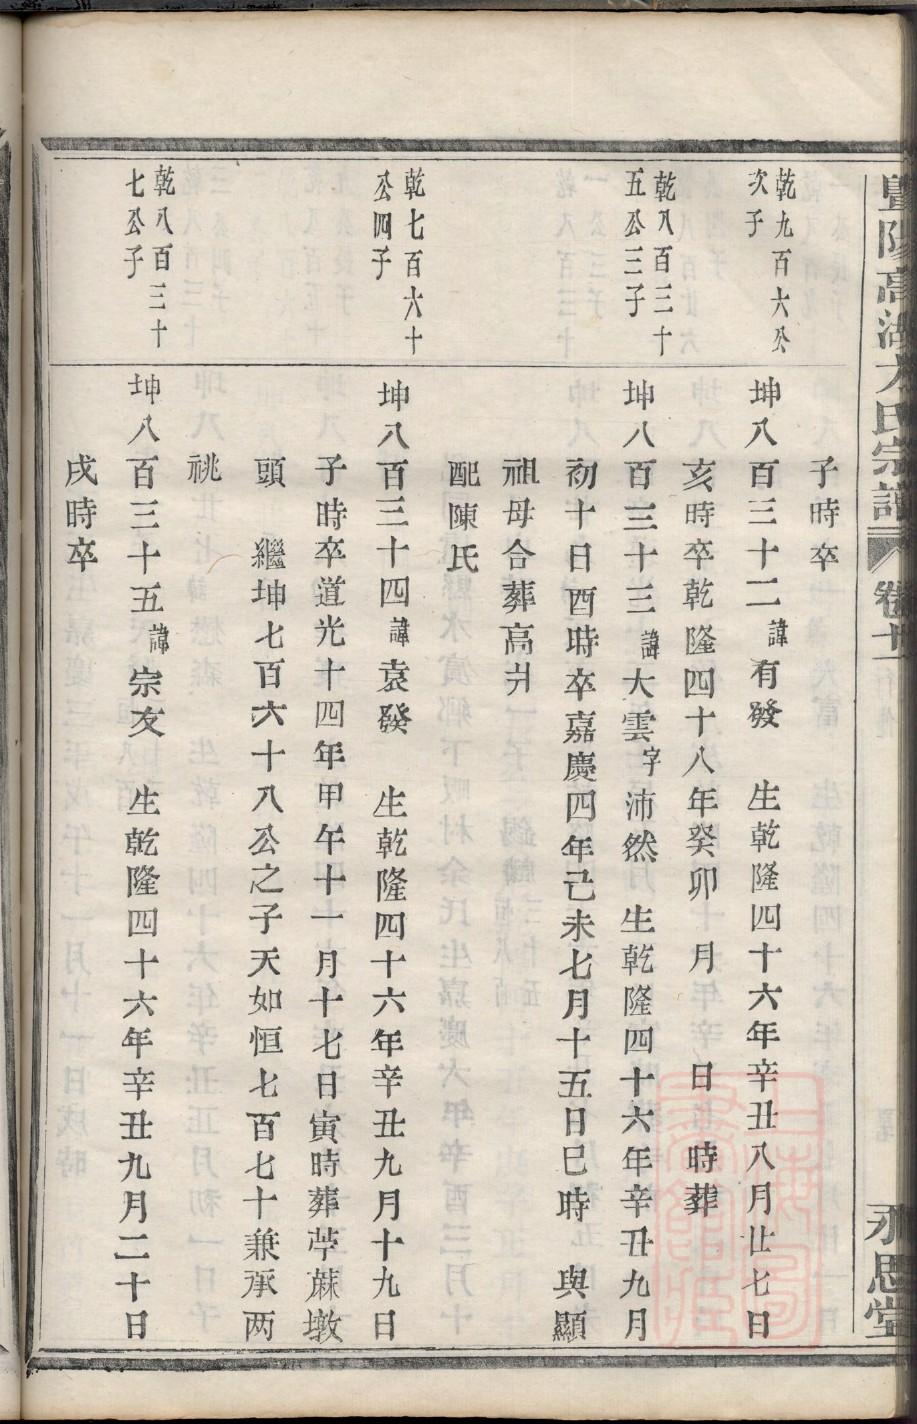 暨陽高湖方氏宗譜 卷十一 永思堂
子時卒
乾九百六公次子
坤八百三十二諱有發 生乾隆四十六年辛丑八月廿七日
亥時卒乾隆四十八年癸卯 月 日 時葬
乾八百三十五公三子
坤八百三十三諱大雲字沛然 生乾隆四十六年辛丑九月
初十日酉時卒嘉慶四年己未七月十五日巳時 與顯
祖母合葬高爿
配陳氏
乾七百六十公四子
坤八百三十四諱袁發 生乾隆四十六年辛丑九月十九日
子時卒道光十四年甲午十一月十七日寅時葬苧蔴墩
頭 繼坤七百六十八公之子天如恒七百七十兼承两
祧
乾八百三十七公子
坤八百三十五諱宗友 生乾隆四十六年辛丑九月二十日
戌時卒